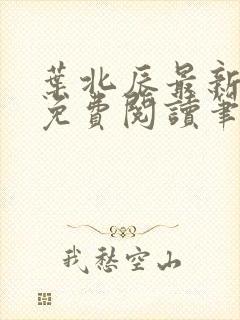 葉北辰最新
免費閱讀筆
我愁空山